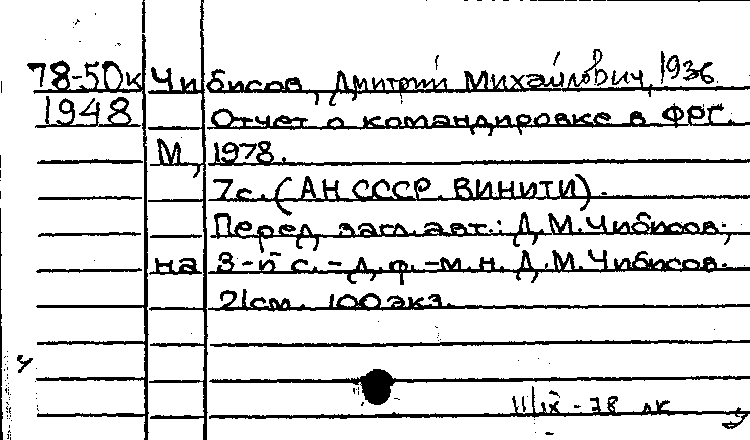 78-50к Чибисов, Дмитрий Михайлович, 1936
1948 Отчет о командировке в ФРГ.
М, 1978.
7с. (АН СССР. ВИНИТИ).
Перед загл. авт.: Д.М. Чибисов,
на 3-й с. - д.ф.-м.н. Д.М. Чибисов.
21см. 100 экз.
11/IX - 78 лк